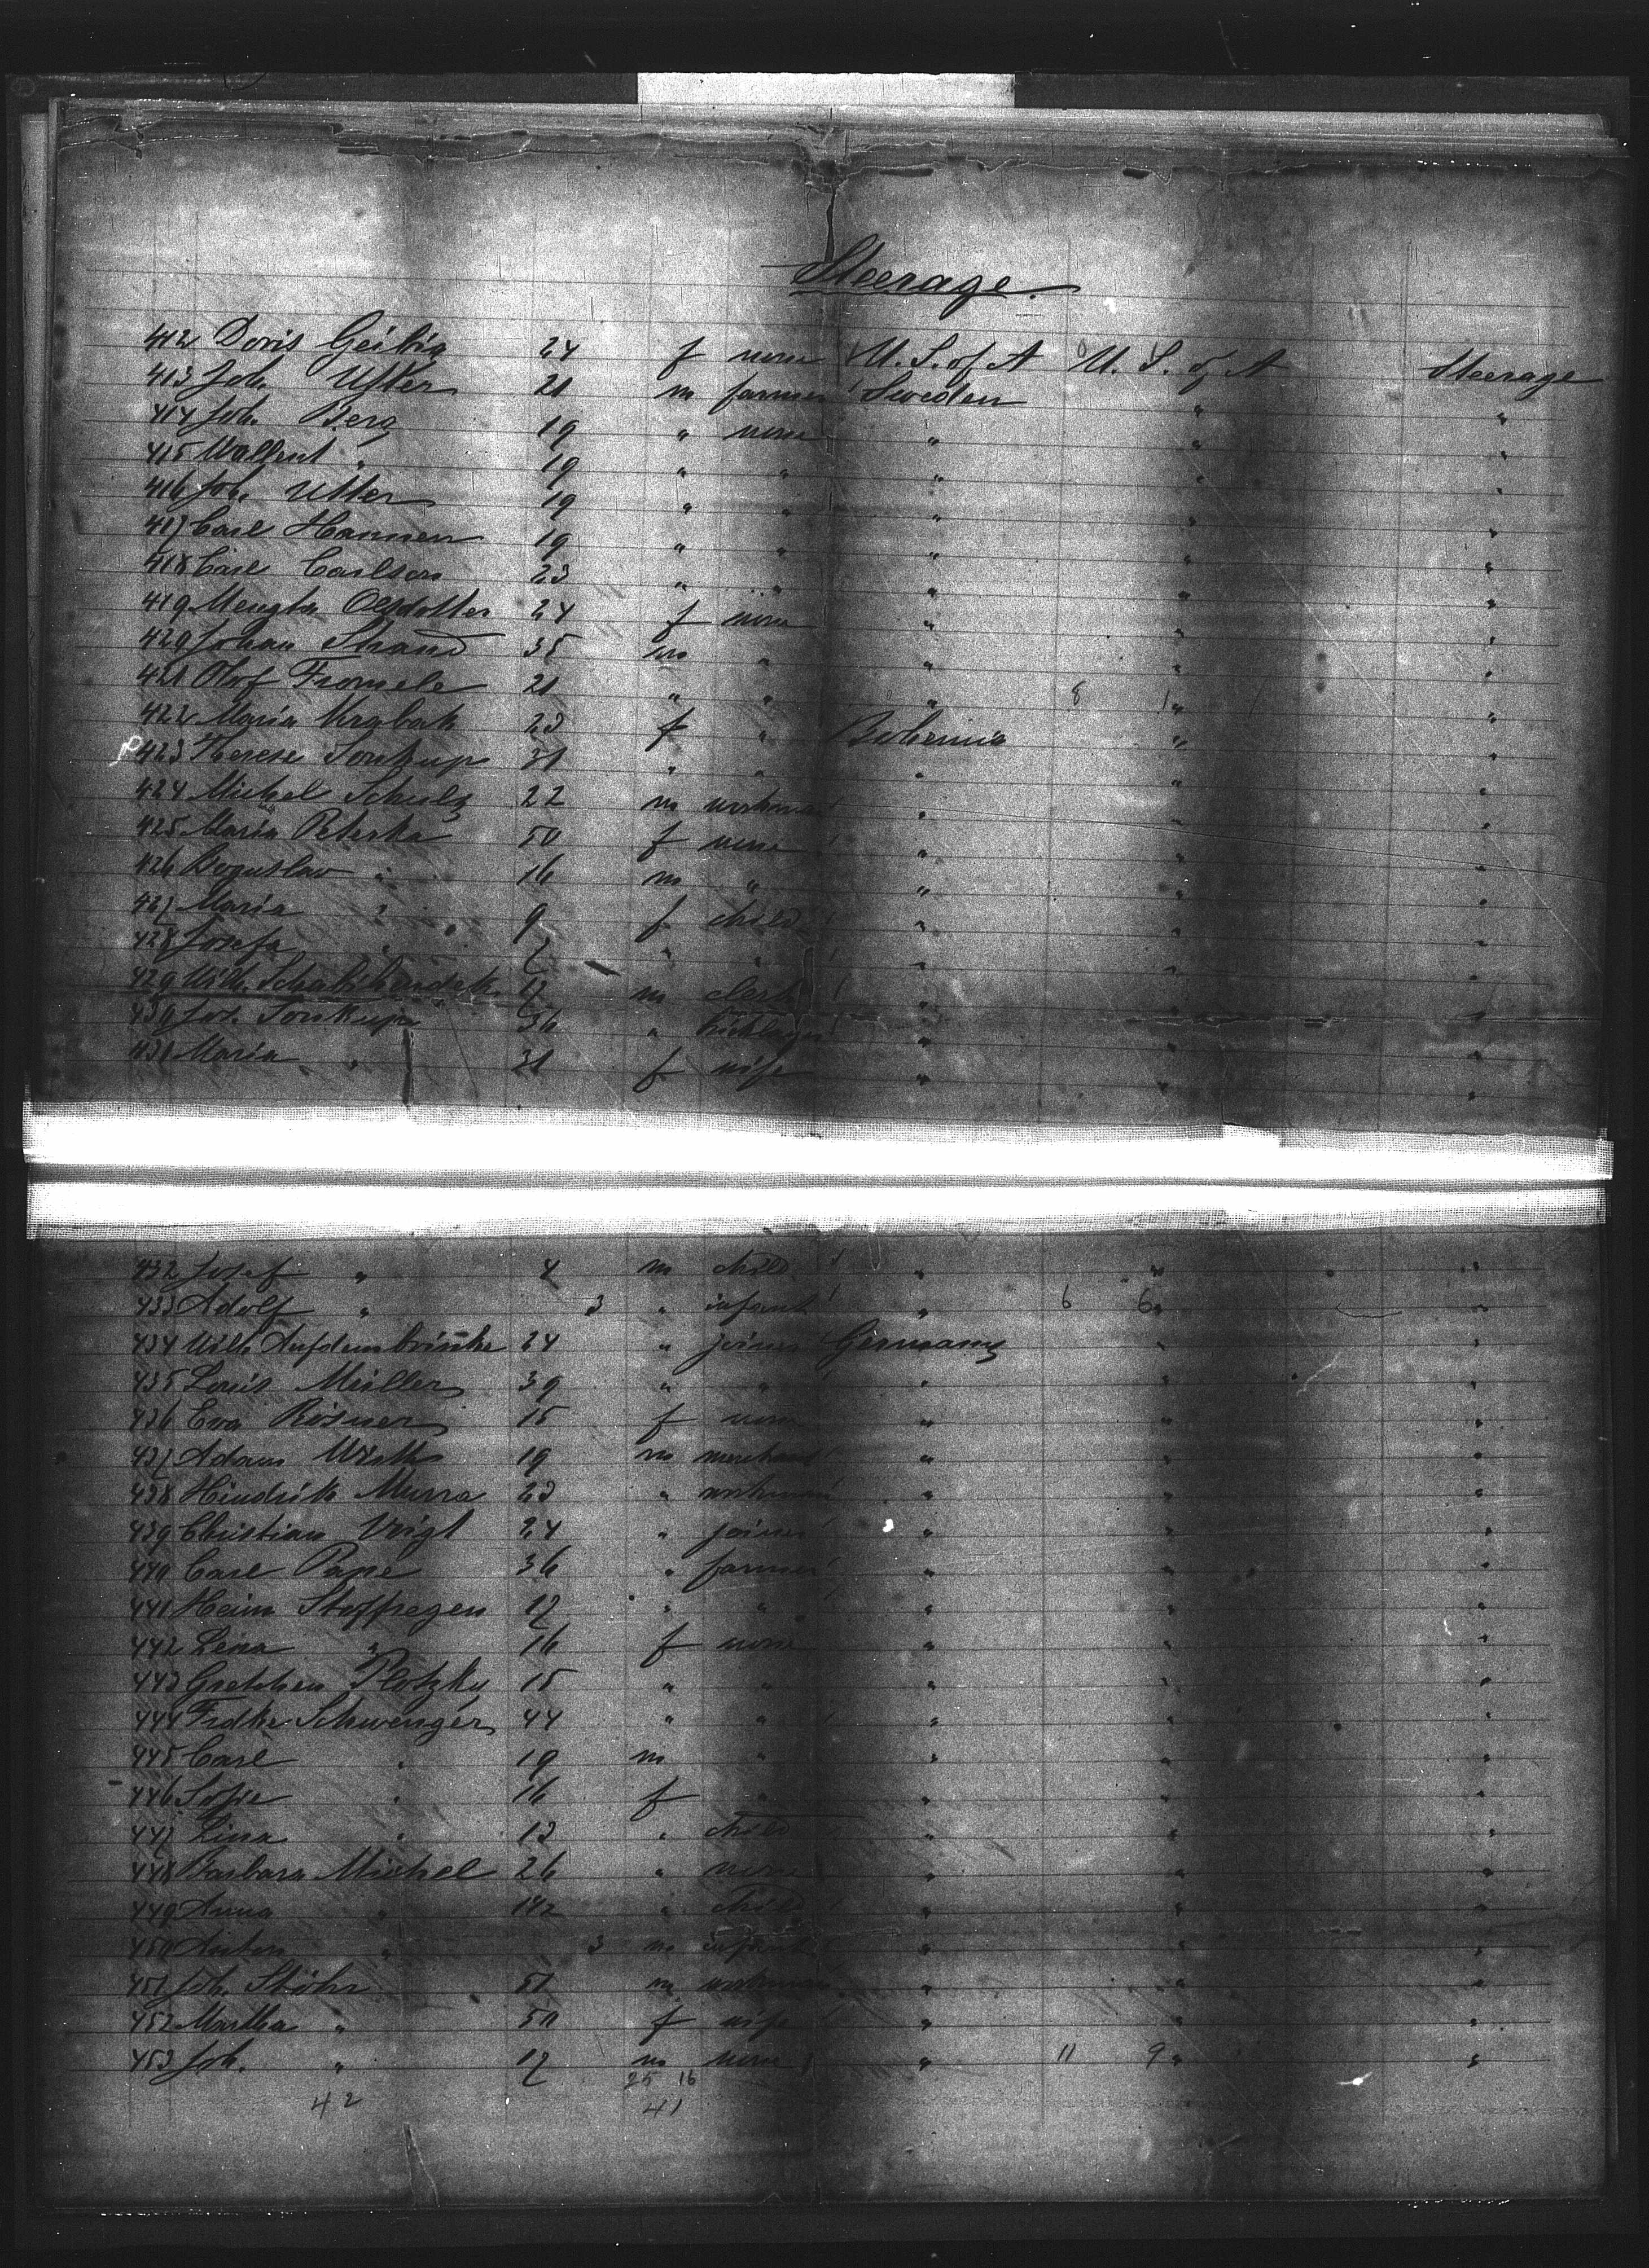 Steerage.
412 Doris Geibig 24 f none U. S. of A U. S. of A Steerage
413 Joh. Utter 21 m farmer Sweden " "
414 Joh. Berg 19 " none " " "
415 " 19 " " " " "
416 Joh. Utter 19 " " " " "
417 Carl Hannen 19 " " " " "
418 Carl Carlson 23 " " " " "
419 Mengta Olsdotter 24 f none " " "
420 Johan Strand 35 m " " " "
421 Olof Fromele 21 " " " 8 1 " "
422 Maria Krabak 23 f " Bohemia " "
423 Therese Soukup 31 " " " " "
424 Michel Schulz 22 m workman " " "
425 Maria Peterka 50 f none " " "
426 Boguslav " 16 m " " " "
427 Maria " 9 f child " " "
428 Josefa " 7 " " " " "
429 Wilh. 17 m clerk " " "
430 Jos. Soukup 36 " " " "
431 Maria " 31 f wife " " "
432 Josef " 4 m child " " "
433 Adolf " 3 " infant " 6 6 " "
434 Wilh. Aufdembrinke 24 " joiner Germany " "
435 Louis Müller 39 " " " " "
436 Eva Rösner 15 f none " " "
437 Adam Wirth 19 m merchant " " "
438 Hindrik Murra 23 " workman " " "
439 Christian Voigt 24 " joiner " " "
440 Carl Pape 36 " farmer " " "
441 Heinr Stoffregen 17 " " " " "
442 Lina " 16 f none " " "
443 Gretchen Plotzky 15 " " " " "
444 Fredke Schwenger 44 " " " " "
445 Carl " 19 m " " " "
446 Sofie " 16 f " " " "
447 Lina " 13 " child " " "
448 Barbara Michel 26 " none " " "
449 Anna " 1 1/2 " child " " "
450 Anton " 3 m infant " " "
451 Joh. Stöhr 51 m workman " " "
452 Martha " 50 f wife " " "
453 Joh. " 17 m none " 11 9 " "
25 16
42 41